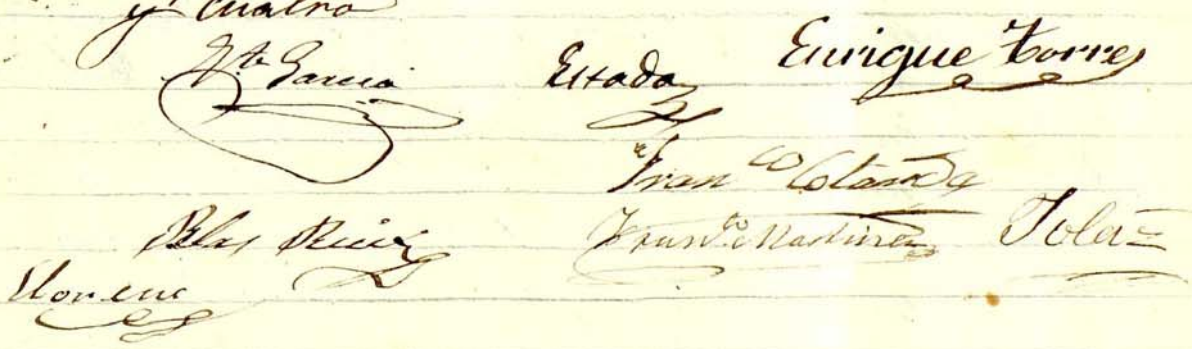 y cuatro
Vte Garcia Estada Enrique Torres
Franco Cotanda
Blas Ruiz Franco Martinez
Llorens